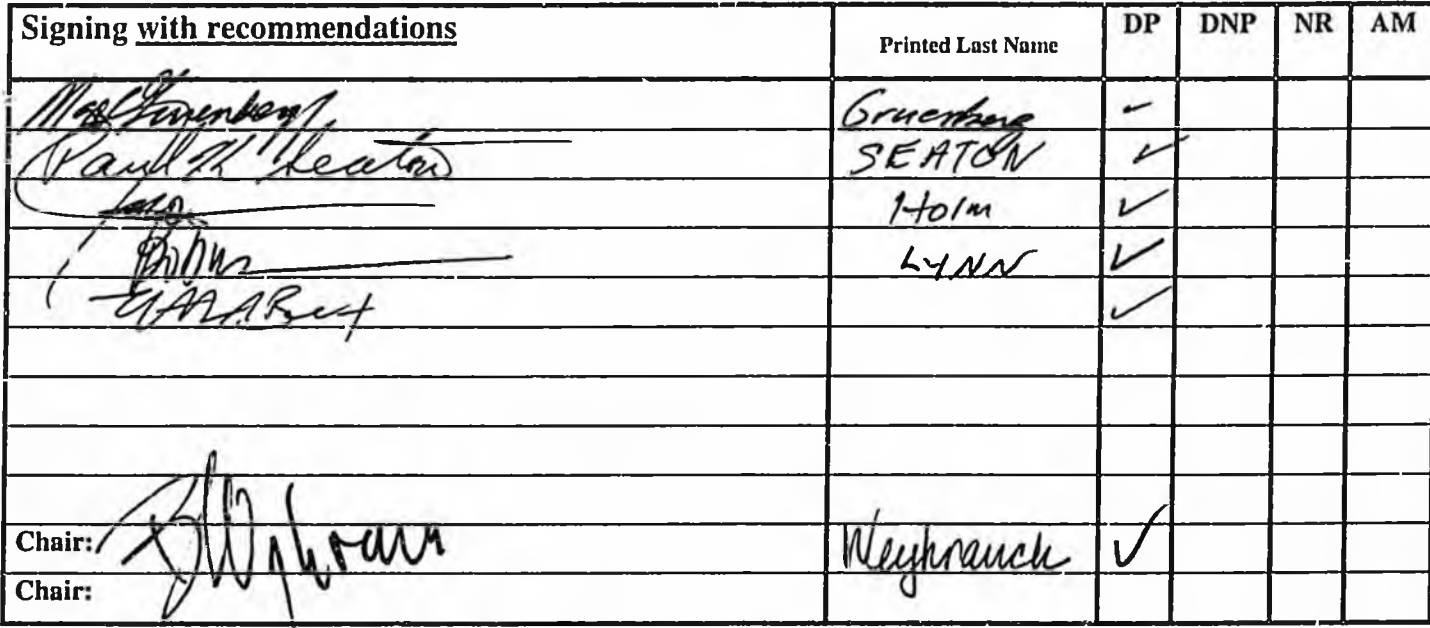 Signing with recommendations Printed Last Name DP DNP NR AM
Gruenberg ✓
Paul K Seaton SEATON ✓
Holm ✓
LYNN ✓
✓
Chair: Weyhrauch ✓
Chair: